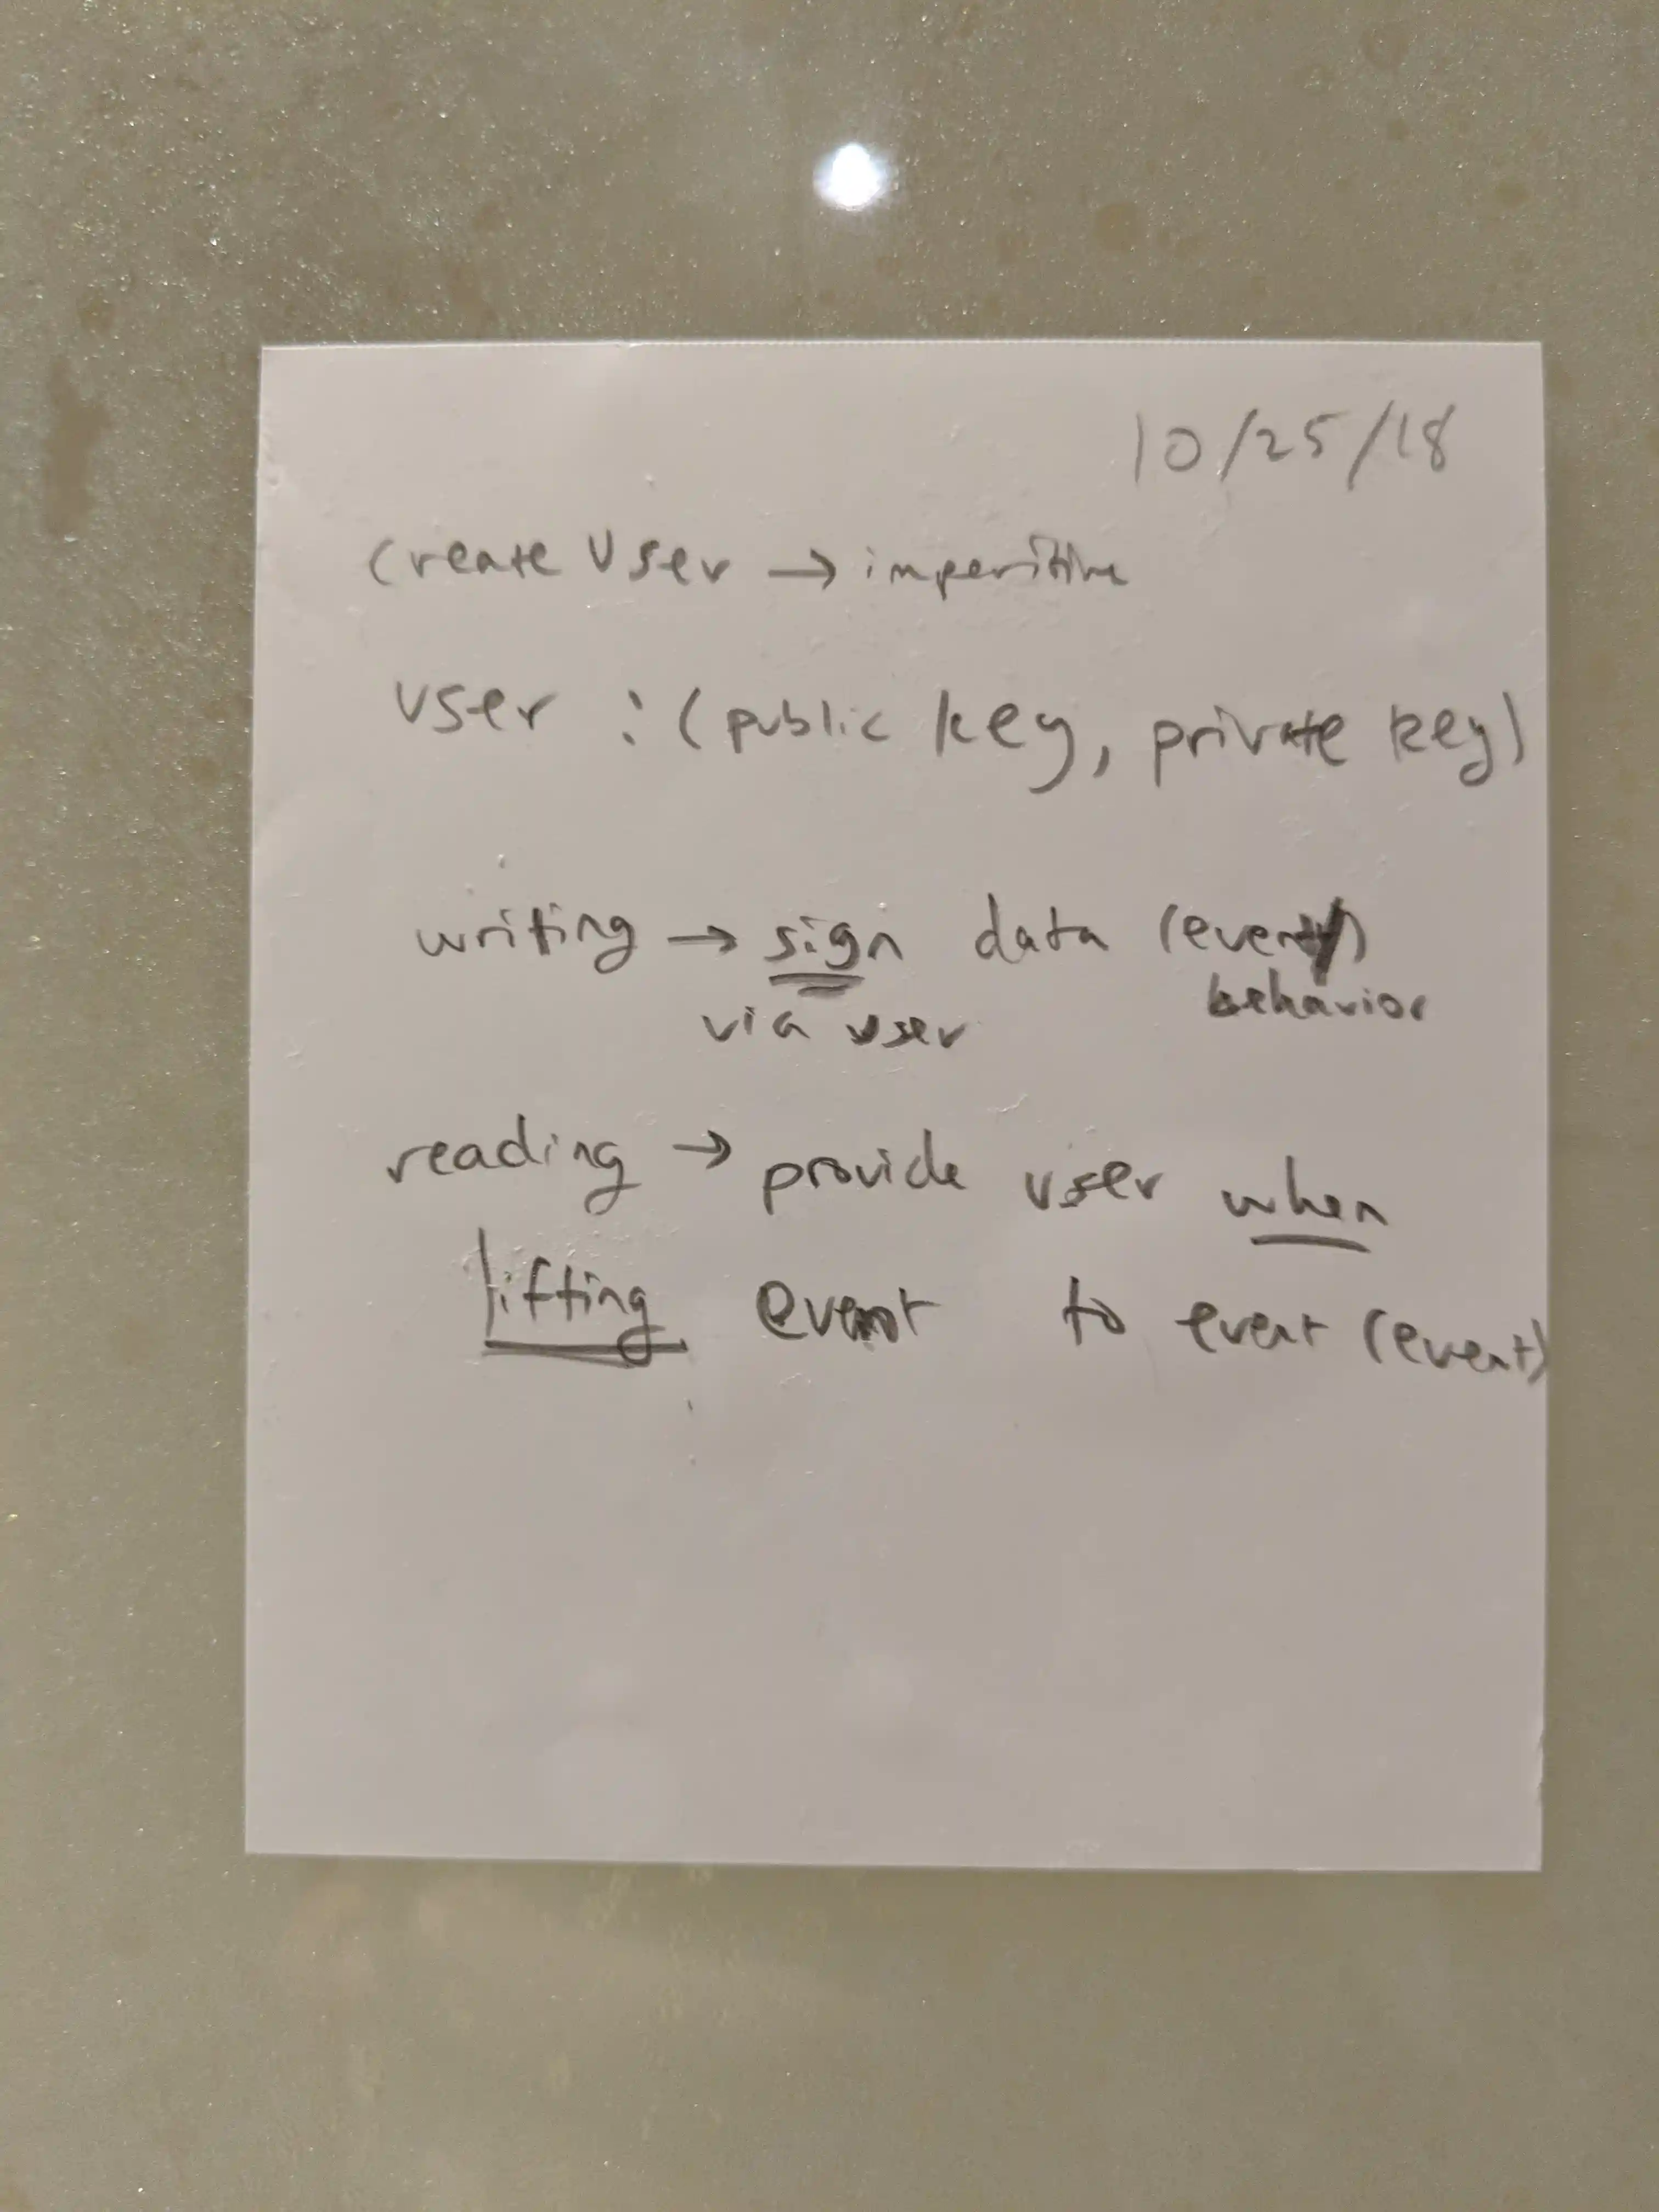 10/25/18
create User → imperitive
user : (public key, private key)
writing → sign data (event/)
behavior
via user
reading → provide user when
lifting event to event (event)